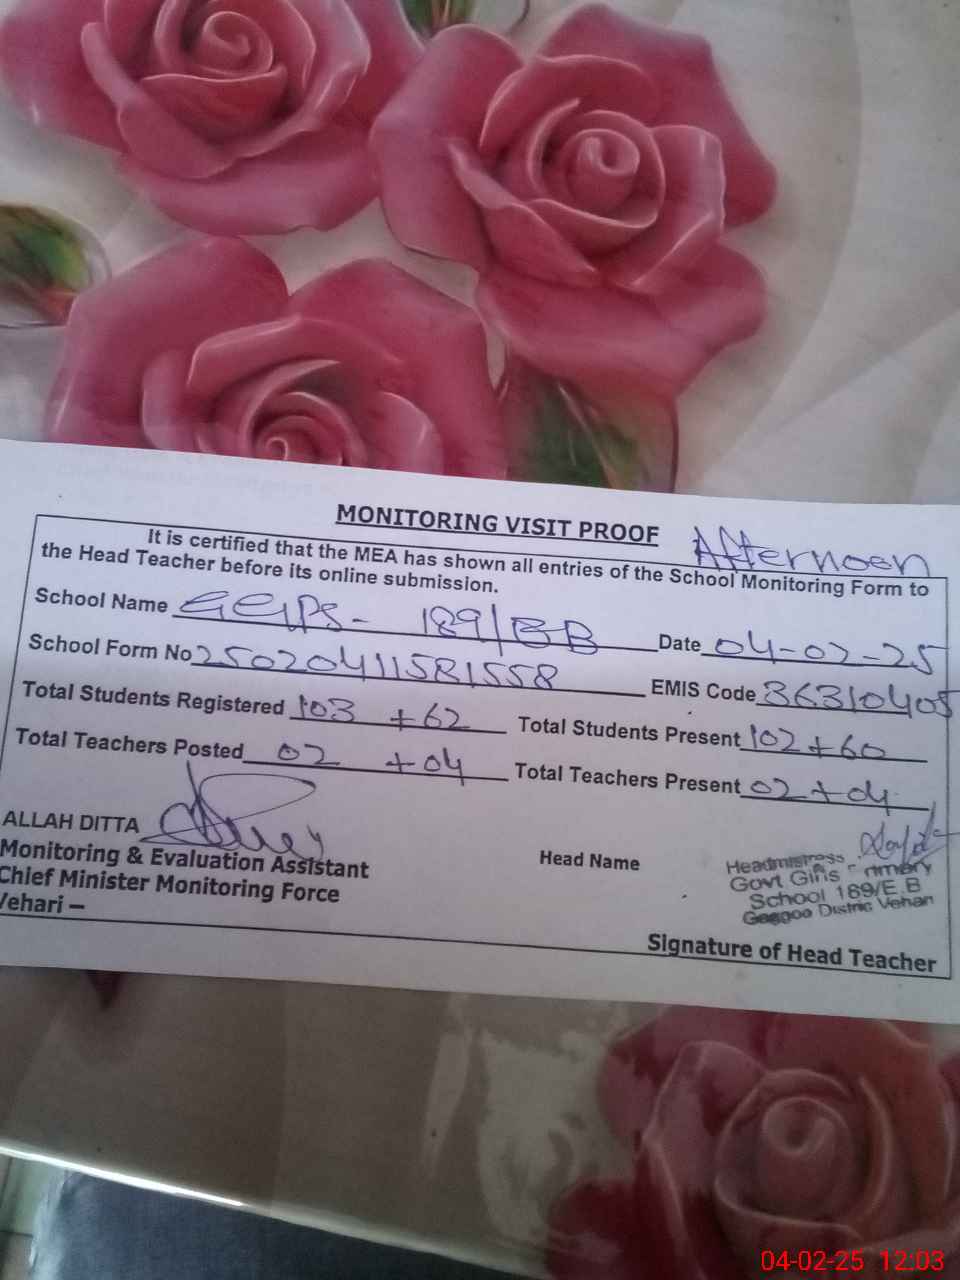 MONITORING VISIT PROOF
Afternoon
It is certified that the MEA has shown all entries of the School Monitoring Form to
the Head Teacher before its online submission.
School Name GGPS- 189/EB Date 04-02-25
School Form No 250204115815 58 EMIS Code 36310405
Total Students Registered 103 +62 Total Students Present 102+60
Total Teachers Posted 02 +04 Total Teachers Present 02+04
ALLAH DITTA
Monitoring & Evaluation Assistant
Chief Minister Monitoring Force
Vehari –
Head Name
Headmistress
Govt Girls Primary
School 189/E.B
Gaggoo District Vehari
Signature of Head Teacher
04-02-25 12:03